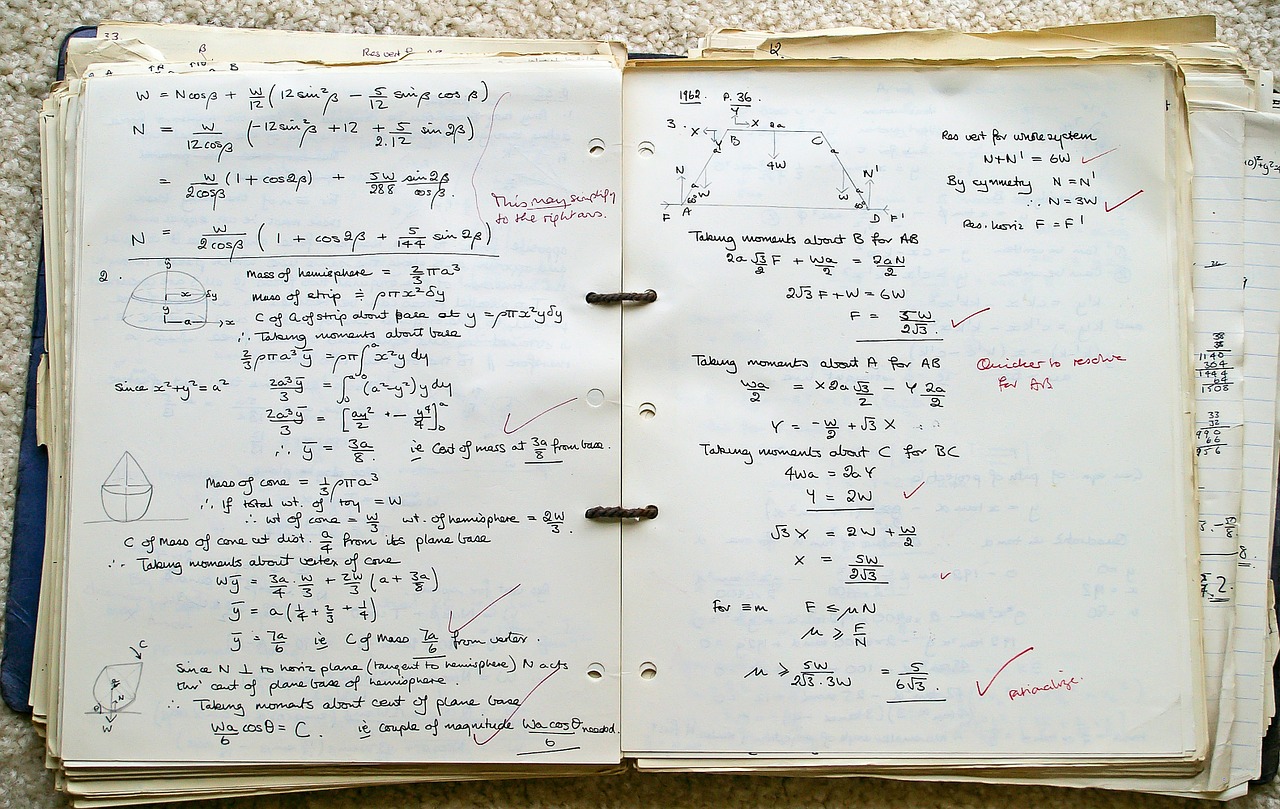 33
Res vert
W = Ncosβ + W/12 (12 sin²β − 5/12 sinβ cosβ)
N = W/12cosβ (−12sin²β + 12 + 5/2.12 sin2β)
= W/2cosβ (1 + cos2β) + 5W/288 sin2β/cosβ.
This may simplify
to the right ans.
N = W/2cosβ (1 + cos2β + 5/144 sin2β)
2.
y
x
δy
y
a
x
Mass of hemisphere = 2/3 πa³
Mass of strip ≑ ρπx²δy
C of G of strip about base at y = ρπx²yδy
∴ Taking moments about base
2/3 ρπa³ȳ = ρπ∫₀ᵃ x²y dy
since x²+y²=a² 2a³ȳ/3 = ∫₀ᵃ (a²−y²)y dy
2a³ȳ/3 = [ay²/2 + − y⁴/4]₀ᵃ
∴ ȳ = 3a/8 ie Cent of mass at 3a/8 from base.
Mass of cone = 1/3 ρπa³
∴ If total wt. of toy = W
∴ wt of cone = W/3 wt. of hemisphere = 2W/3.
C of Mass of cone at dist. a/4 from its plane base
∴ Taking moments about vertex of cone
Wȳ = 3a/4 . W/3 + 2W/3 (a + 3a/8)
ȳ = a(1/4 + 2/3 + 1/4)
ȳ = 7a/6 ie C of Mass 7a/6 from vertex.
C
N
θ
W
Since N ⊥ to horiz plane (tangent to hemisphere) N acts
thro' cent of plane base of hemisphere.
∴ Taking moments about cent of plane base
Wa/6 cosθ = C. ie couple of magnitude Wa cosθ/6 needed.
1962. P. 36.
3.
Y
X X 2a
B C
4W
a a
N N'
W W
a a
60° 60°
F A D F'
Res vert for whole system
N+N' = 6W
By symmetry N = N'
∴ N = 3W
Res. horiz F = F'
Taking moments about B for AB
2a √3/2 F + Wa/2 = 2aN/2
2√3 F + W = 6W
F = 5W/2√3.
Taking moments about A for AB
Quicker to resolve
for AB
Wa/2 = X 2a √3/2 − Y 2a/2
Y = −W/2 + √3 X
Taking moments about C for BC
4Wa = 2aY
Y = 2W
√3 X = 2W + W/2
X = 5W/2√3
For ≡m F ≤ μN
μ ≥ F/N
μ ≥ 5W/2√3.3W = 5/6√3.
rationalize.
38
38
1140
304
1444
64
1508
33
32
990
66
956